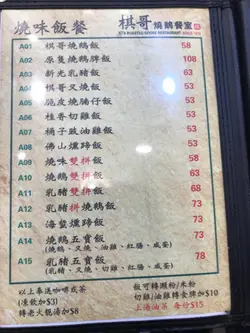 燒味飯餐
棋哥燒鵝餐室
KI'S ROASTED GOOSE RESTAURANT
A01 棋哥燒鵝飯 58
A02 原隻燒鵝髀飯 108
A03 新光乳豬飯 63
A04 棋哥叉燒飯 53
A05 脆皮燒腩仔飯 53
A06 桂香切雞飯 53
A07 桶子豉油雞飯 53
A08 佛山燻蹄飯 53
A09 燒味雙拼飯 58
A10 燒鵝雙拼飯 63
A11 乳豬雙拼飯 68
A12 乳豬拼燒鵝飯 73
A13 海蜇燻蹄飯 53
A14 燒鵝五寶飯 73
(燒鵝、叉燒、油雞、紅腸、咸蛋)
A15 乳豬五寶飯 78
(乳豬、叉燒、切雞、紅腸、咸蛋)
以上奉送咖啡或茶
(凍飲加$3)
轉老火靚湯加$8
飯可轉瀨粉/米粉
切雞/油雞轉金牌加$10
上湯油菜 每份$15